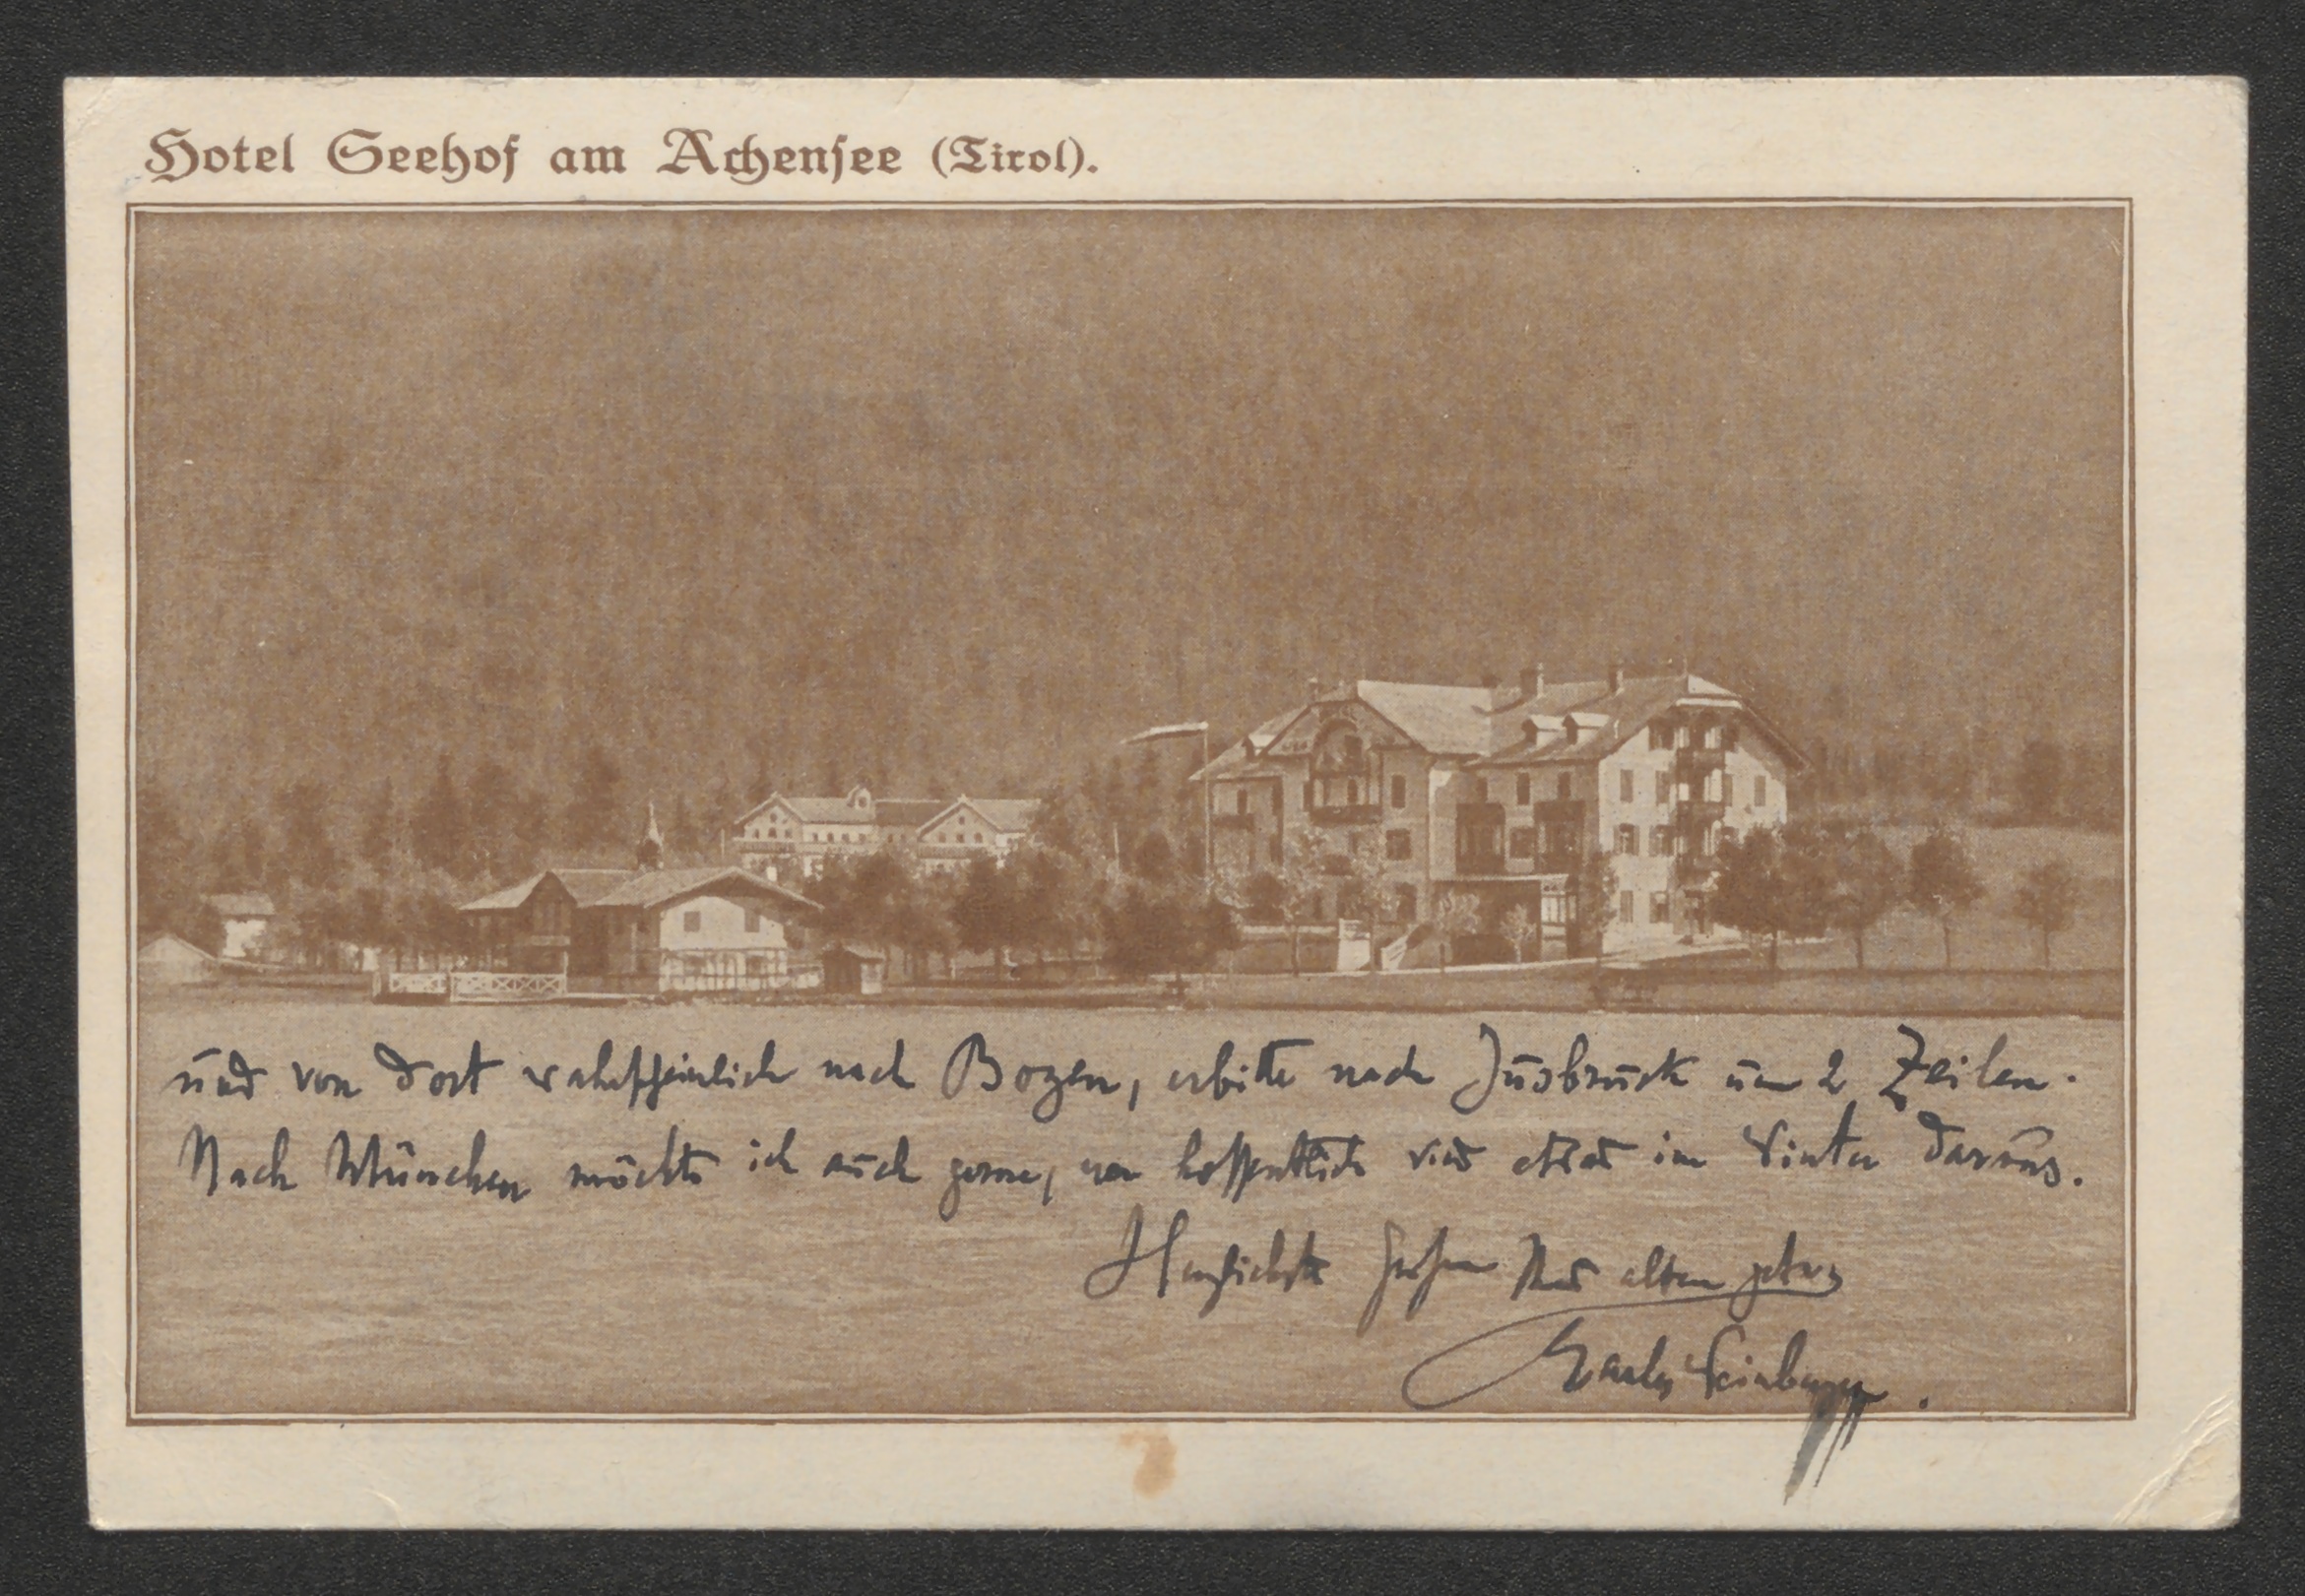 Hotel Seehof am Achensee (Tirol).
und von dort wahrscheinlich nach Bozen, erbitte nach Insbruck um 2 Zeilen.
Nach München möchte ich auch gerne, hoffentlich wird etwas im Winter daraus.
Herzlichste Grüße Ihres alten getreu